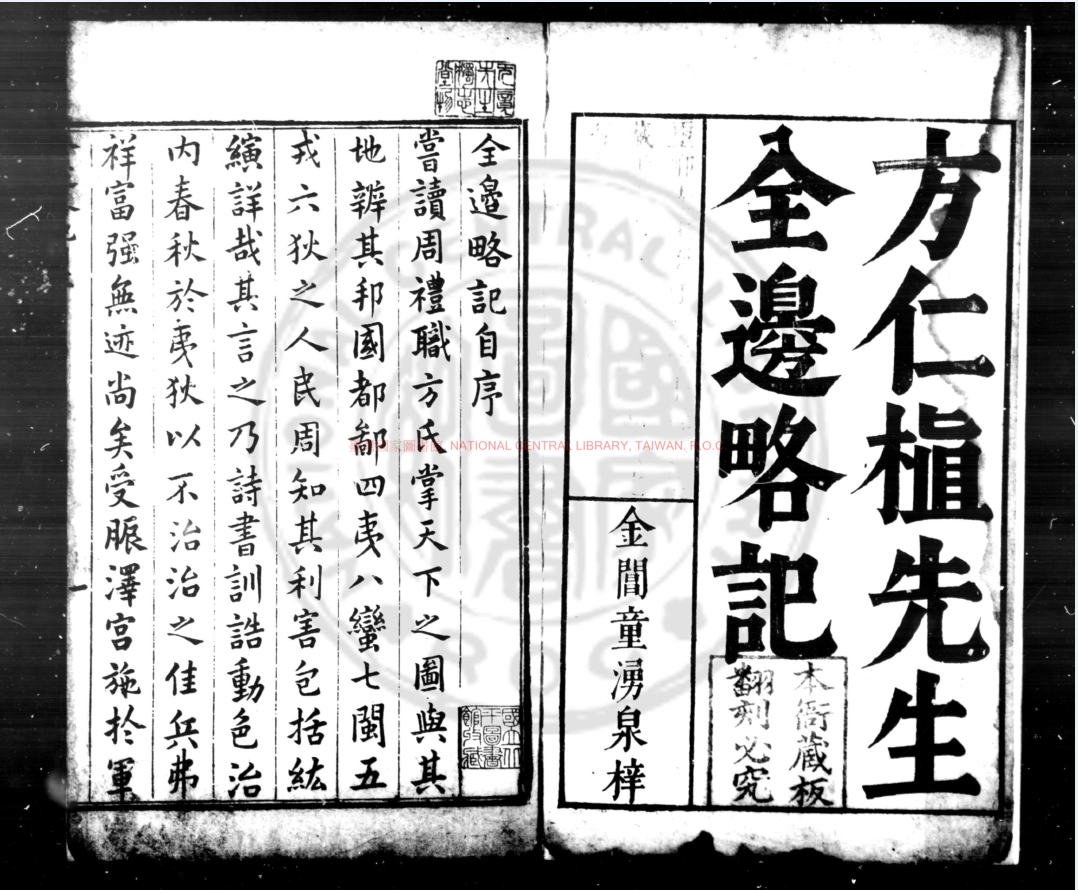 方仁植先生
全邊略記
本衙藏板
翻刻必究
金閶童湧泉梓
全邊略記自序
嘗讀周禮職方氏掌天下之圖與其
地辨其邦國都鄙四夷八蠻七閩五
戎六狄之人民周知其利害包括紘
縯詳哉其言之乃詩書訓誥動色治
內春秋於夷狄以不治治之佳兵弗
祥富强無迹尚矣受脤澤宮施於軍
國立中
央圖書
館收藏
NATIONAL CENTRAL LIBRARY, TAIWAN, R.O.C.